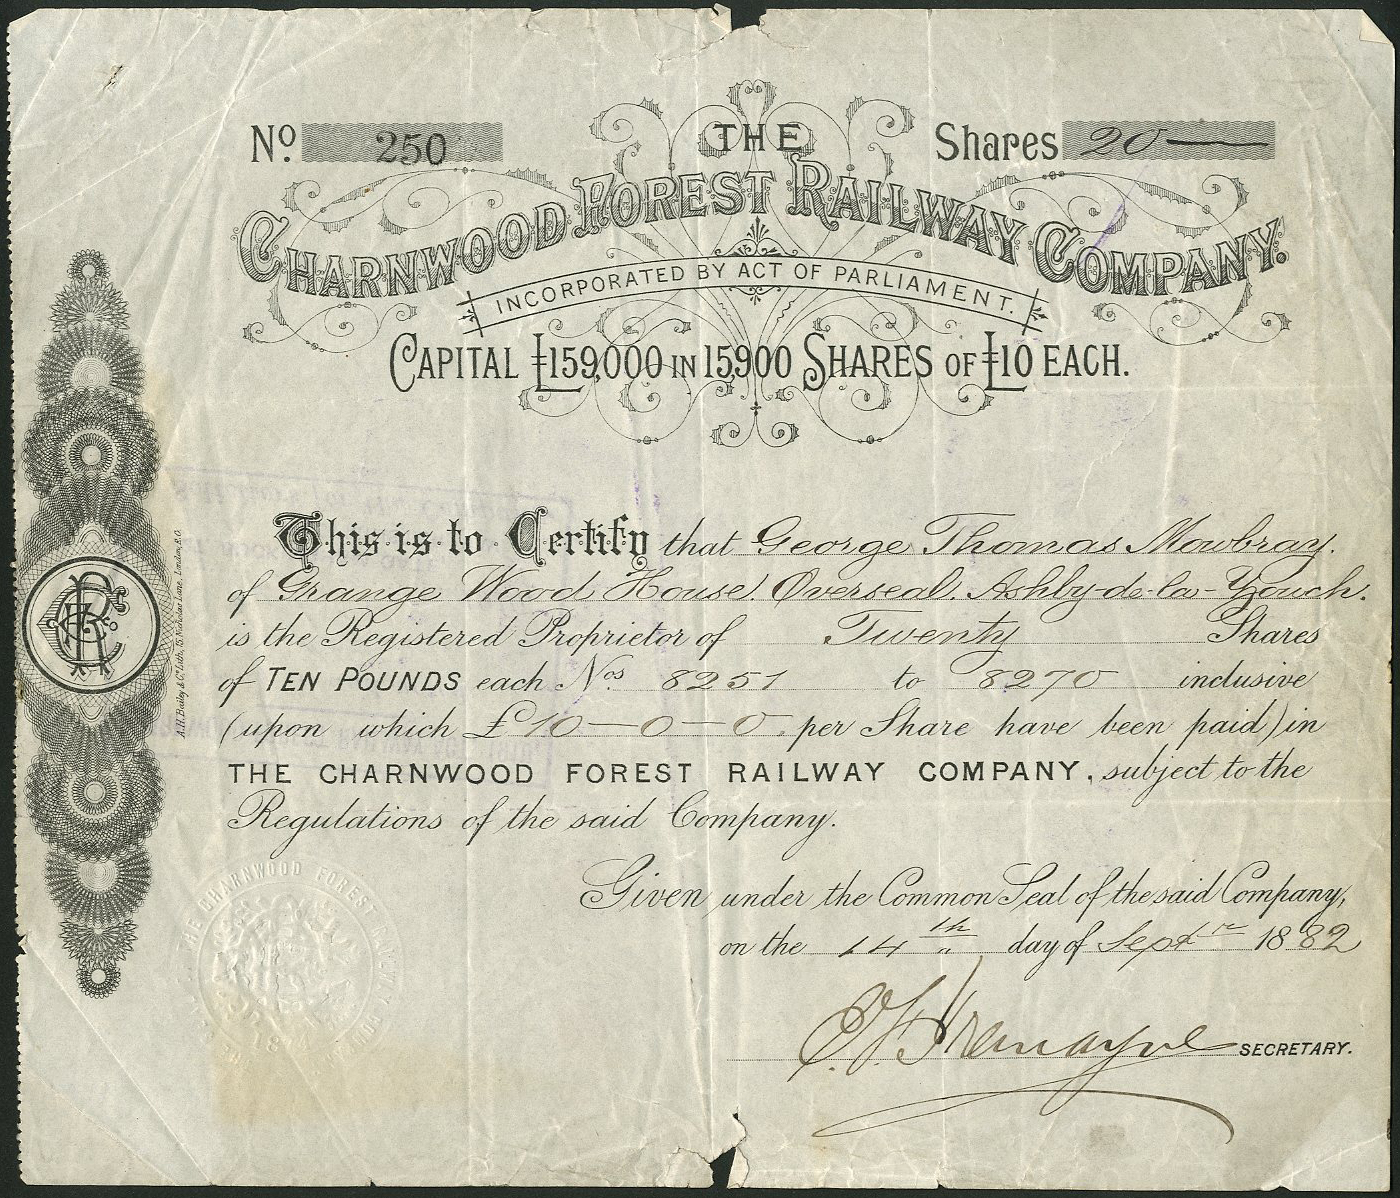 No. 250
THE
Shares 20
CHARNWOOD FOREST RAILWAY COMPANY.
INCORPORATED BY ACT OF PARLIAMENT.
CAPITAL £159,000 IN 15,900 SHARES OF £10 EACH.
This is to Certify that George Thomas Mowbray.
of Grange Wood House, Overseal, Ashby-de-la-Zouch.
is the Registered Proprietor of Twenty Shares
of TEN POUNDS each Nos. 8251 to 8270 inclusive
(upon which £10-0-0 per Share have been paid) in
THE CHARNWOOD FOREST RAILWAY COMPANY, subject to the
Regulations of the said Company.
Given under the Common Seal of the said Company,
on the 14th day of Septr 1882
SECRETARY.
THE CHARNWOOD FOREST RAILWAY COMPANY
A.H. Bailey & Co. Lith, 15, Nicholas Lane, London, E.C.